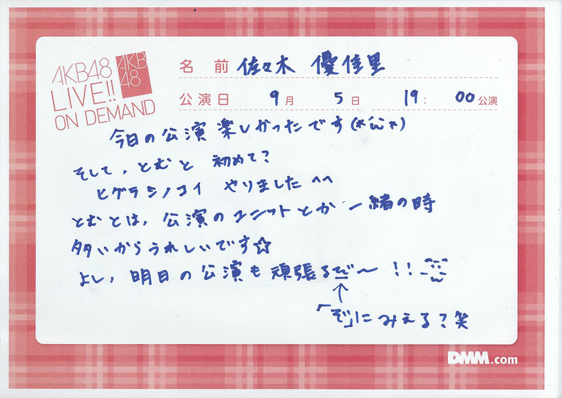 AKB48
LIVE!!
ON DEMAND
AKB
48
名前 佐々木 優佳里
公演日 9月 5日 19:00公演
今日の公演楽しかったです(*´ω`*)
そして、とむと 初めて?
ヒグラシノコイ やりました^^
とむとは、公演のユニットとか一緒の時
多いからうれしいです☆
よし、明日の公演も頑張るぞ〜!!
↑
「ぞ」にみえる?笑
DMM.com